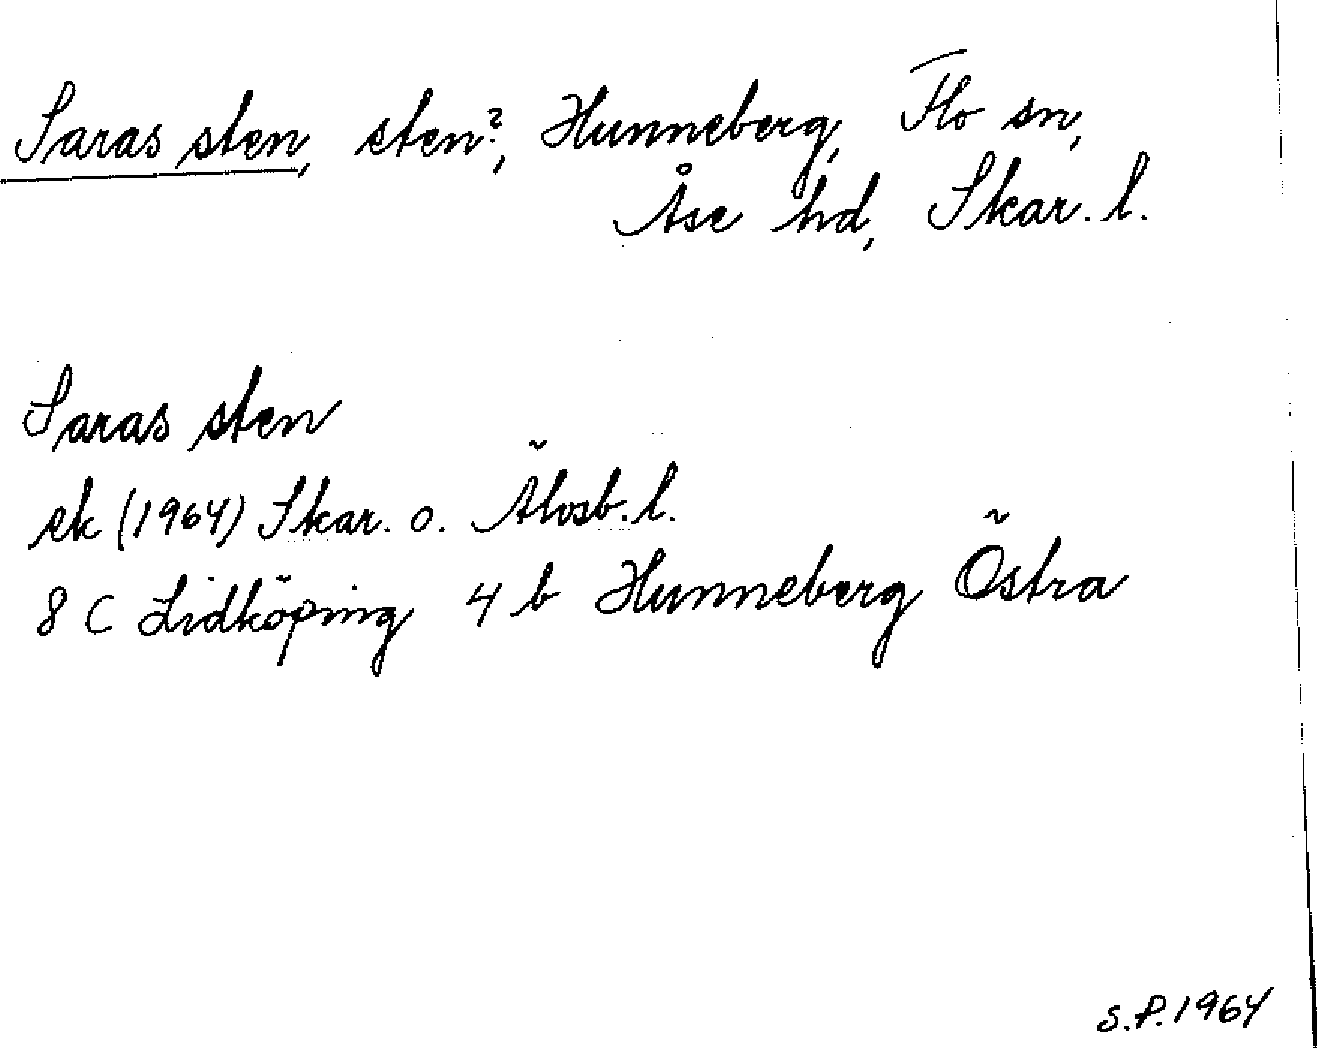 Saras sten, sten?, Hunneberg, Flo sn,
Åse hd, Skar. l.
Saras sten
ek (1964) Skar. o. Älvsb. l.
8 C Lidköping 4 b Hunneberg Östra
S.P. 1964